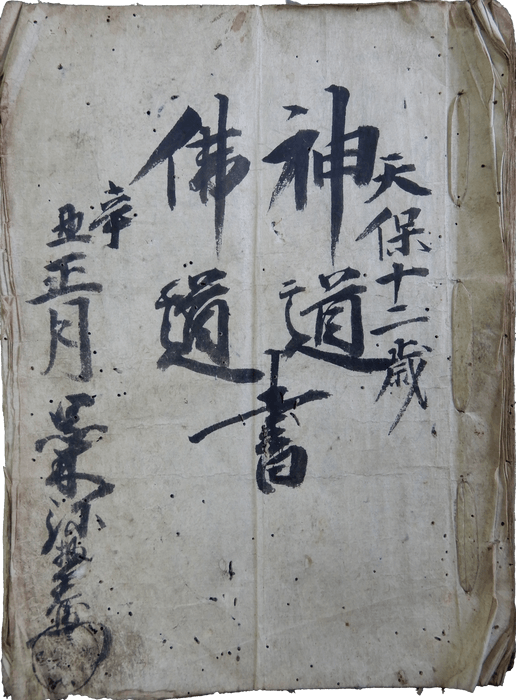 天保十二歳
神道
佛道
書
辛丑
正月